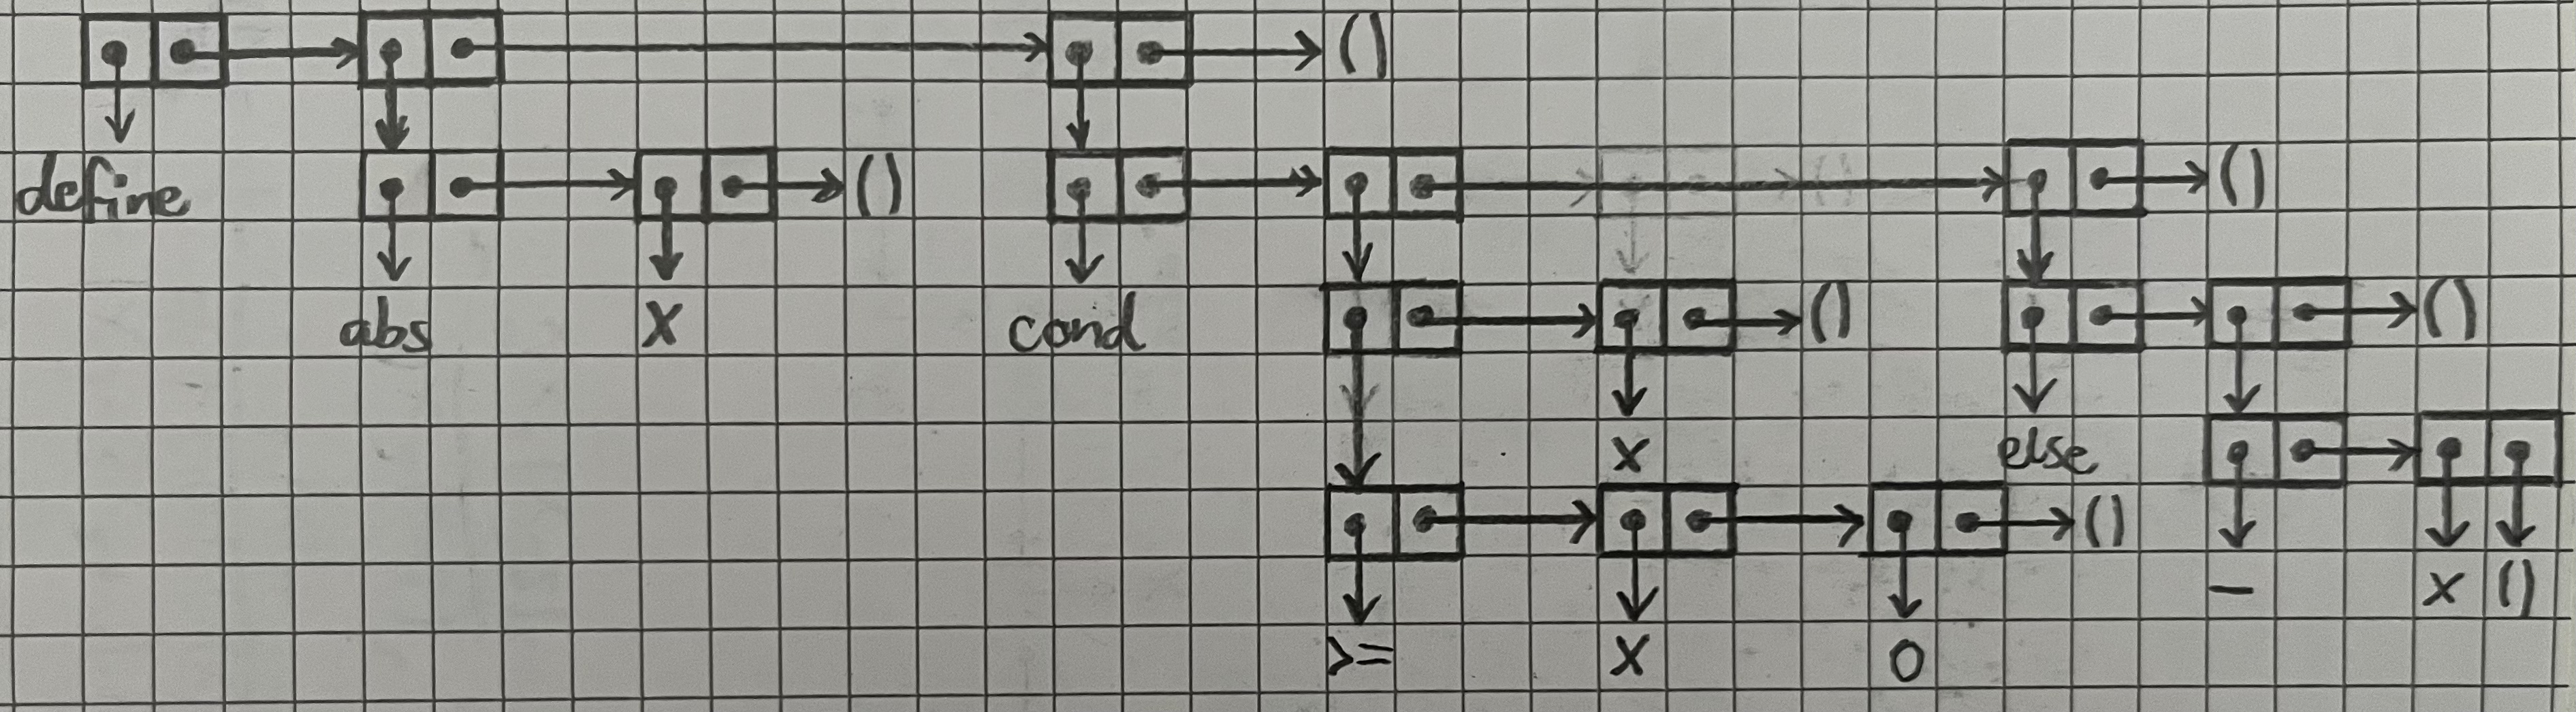 ()
define () ()
abs X cond () ()
x else
() - x ()
>= X 0